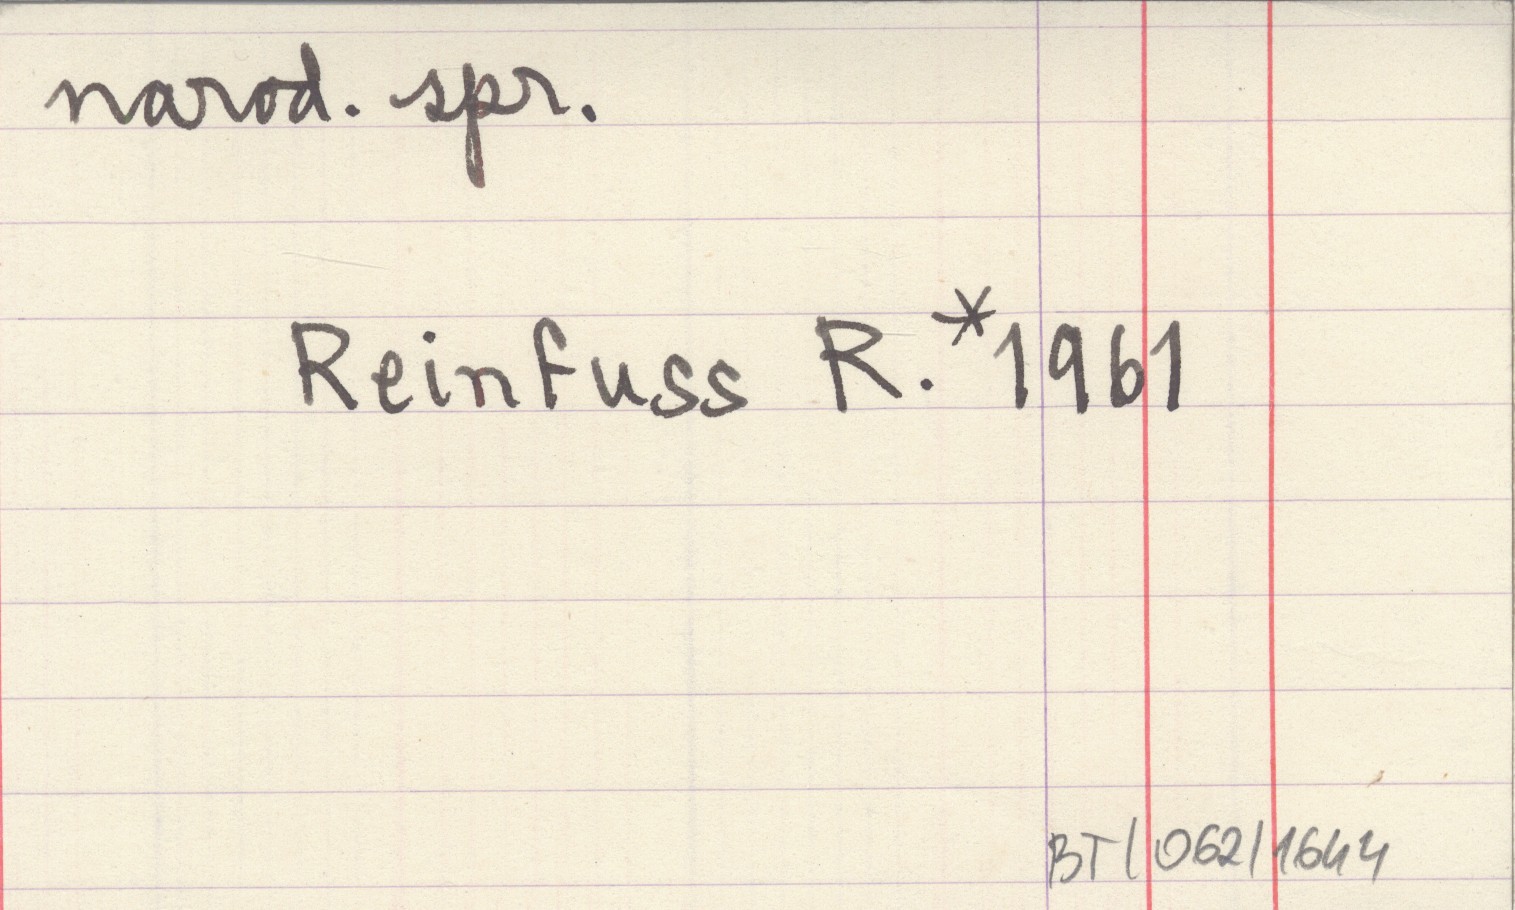 narod. spr.
Reinfuss R.*1961
BT/062/1644